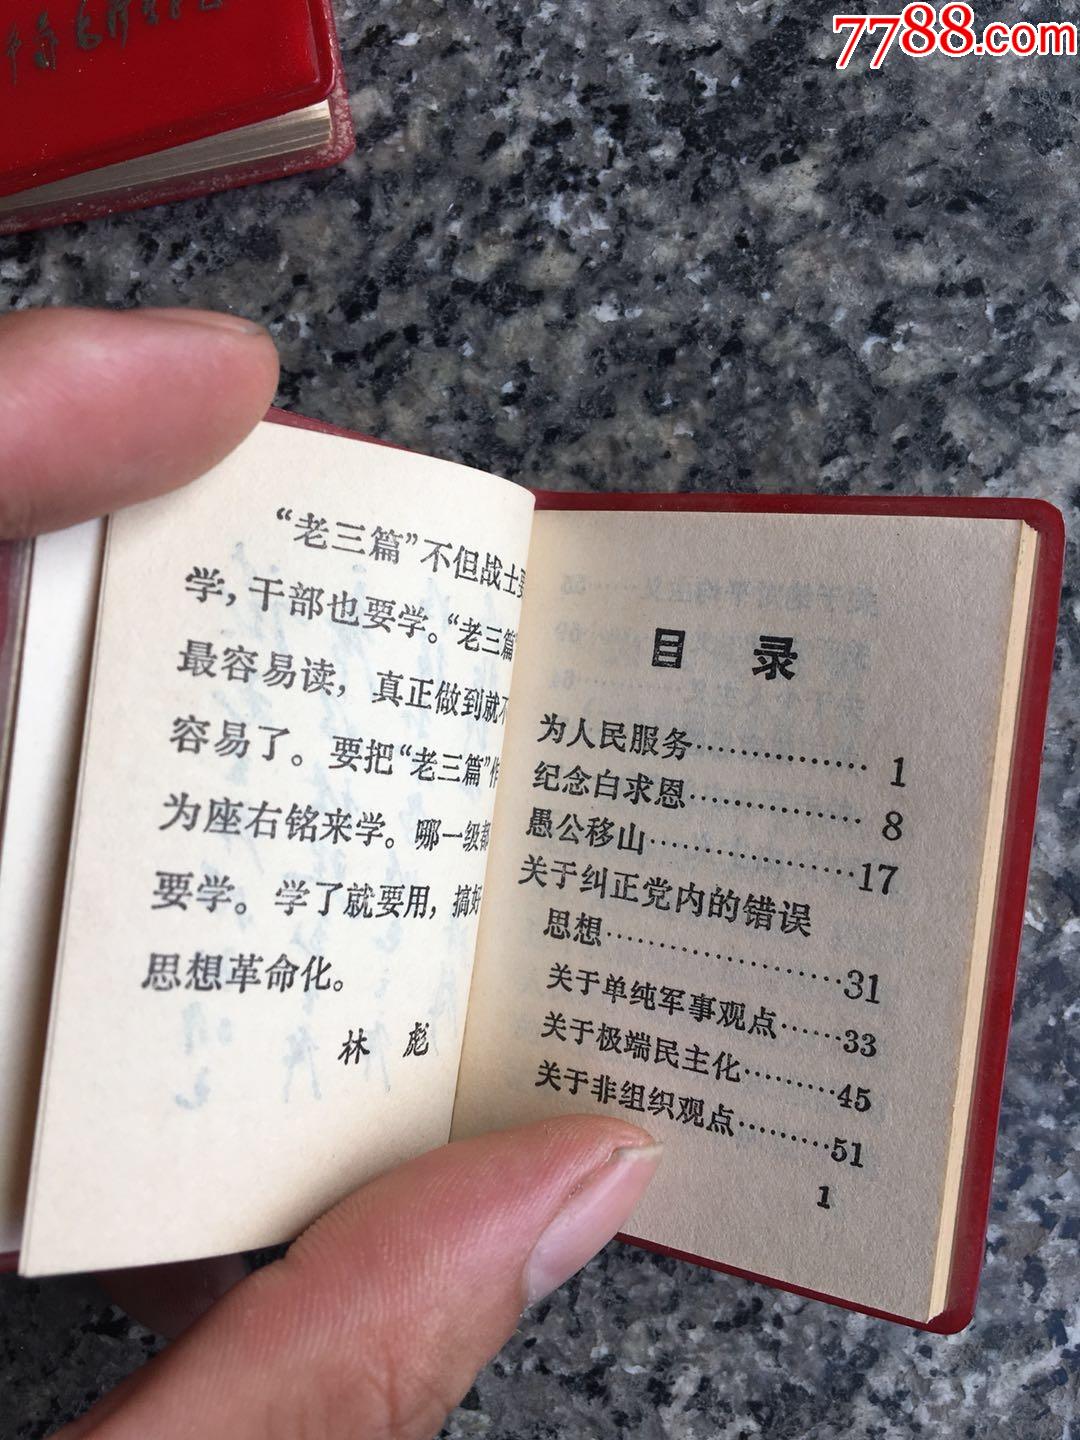 7788.com
“老三篇”不但战士要
学，干部也要学。“老三篇”
最容易读，真正做到就不
容易了。要把“老三篇”作
为座右铭来学。哪一级都
要学。学了就要用，搞好
思想革命化。
林 彪
目 录
为人民服务……………1
纪念白求恩……………8
愚公移山………………17
关于纠正党内的错误
思想…………………31
关于单纯军事观点……33
关于极端民主化………45
关于非组织观点………51
1